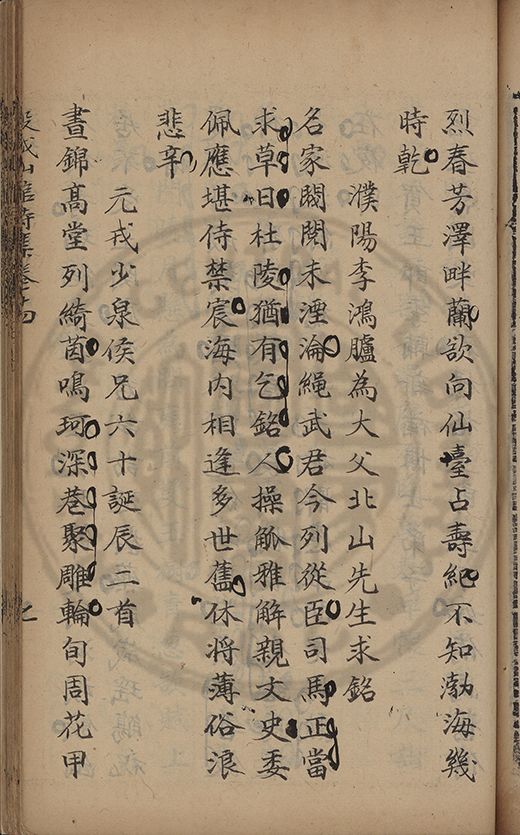 烈春芳澤畔蘭欲向仙臺占壽紀不知渤海幾
時乾
濮陽李鴻臚為大父北山先生求銘
名家閥閱未湮淪繩武君今列從臣司馬正當
求草日杜陵猶有乞銘人操觚雅解親文史委
佩應堪侍禁宸海內相逢多世舊休將薄俗浪
悲辛
元戎少泉侯兄六十誕辰二首
晝錦高堂列綺茵鳴珂深巷聚雕輪旬周花甲
山館詩集卷十四